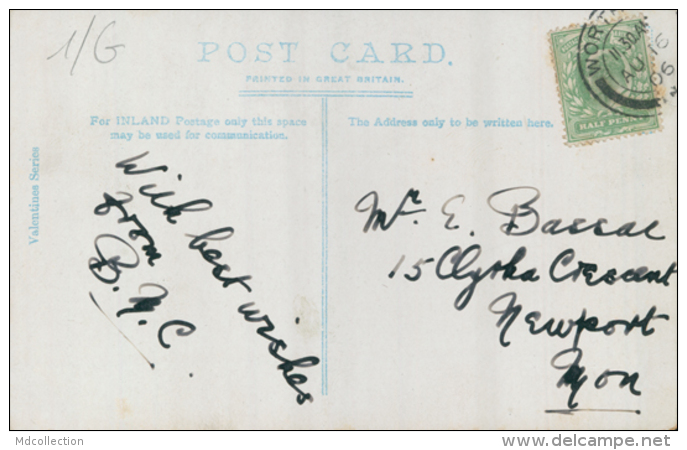 1/6
POST CARD.
PRINTED IN GREAT BRITAIN.
For INLAND Postage only this space
may be used for communication.
The Address only to be written here.
Valentines Series
With best wishes
from
B.N.C.
Mr. E. Bassac
15 Clytha Crescent
Newport
Mon
HALF PENNY
WOR
11.30AM
AU 16
06
Mdcollection
www.delcampe.net